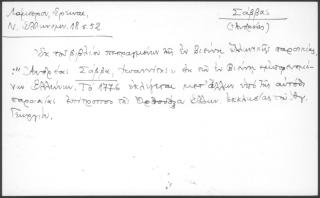 Λάμπρου, Σπυρ.
Ν. Ἑλληνομν. 18 σ. 52
Σάββας
(Ἀνδρέας)
Ἐκ τῶν βιβλίων πεπραγμένων τῆς ἐν Βιέννῃ ἑλληνικῆς παροικίας
"Ἀνδρέας Σάββα, Ἰωαννίτης" ἐκ τῶν ἐν Βιέννῃ
Ἑλλήνων. Τὸ 1776 ἐκλέγεται μετ' ἄλλων ὑπὸ τῆς αὐτόθι
παροικίας ἐπίτροπος τῆς Ὀρθοδόξου Ἑλλην. Ἐκκλησίας τοῦ Ἁγ.
Γεωργίου.